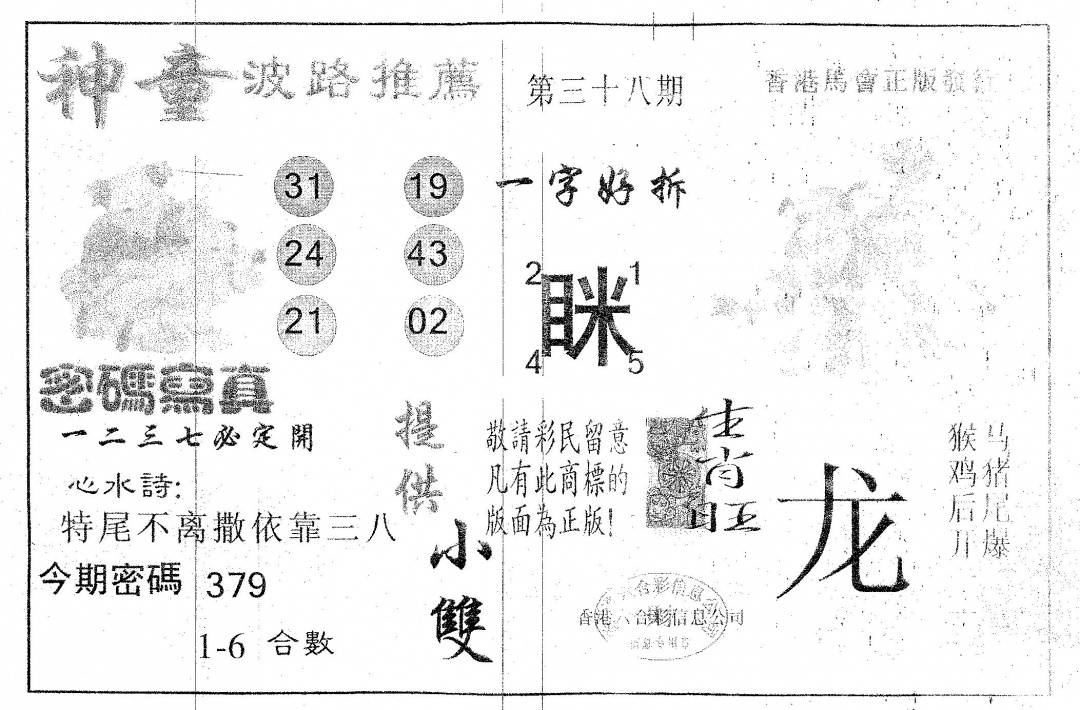 神童波路推薦
第三十八期
香港馬會正版發行
31 19
24 43
21 02
一字好拆
2 1
眯
4 5
密碼寫真
一二三七必定開
心水詩:
特尾不离撒依靠三八
今期密碼 379
1-6 合數
提供
小雙
敬請彩民留意
凡有此商標的
版面為正版!
生肖旺
龙
马猪尾爆
猴鸡后开
香港六合彩信息公司